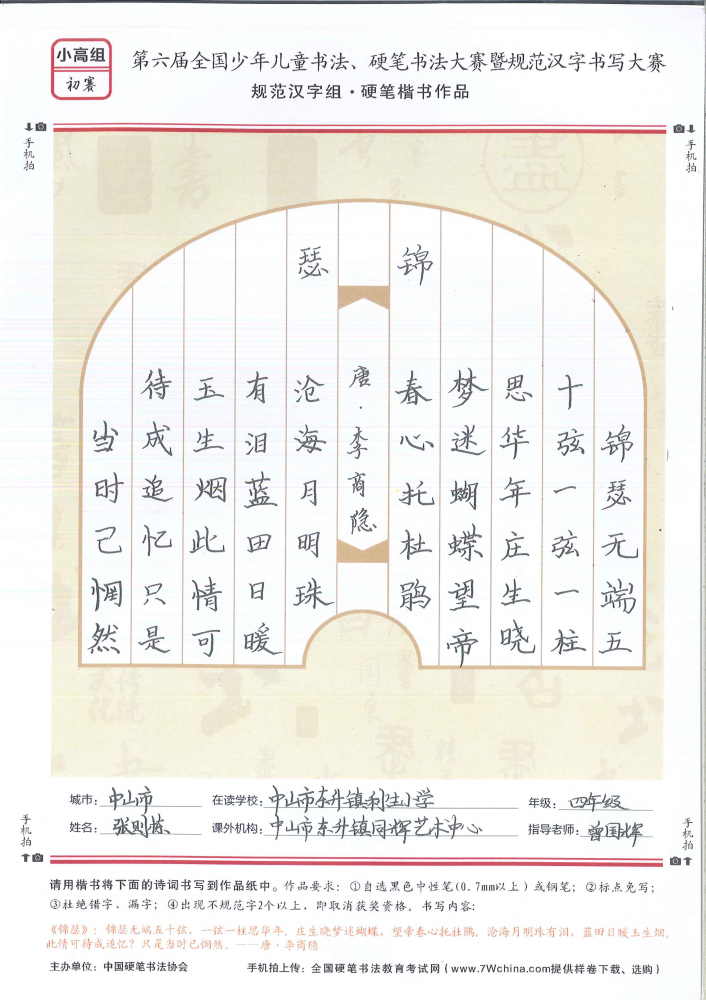 小高组
初赛
第六届全国少年儿童书法、硬笔书法大赛暨规范汉字书写大赛
规范汉字组·硬笔楷书作品
手机拍
手机拍
锦
瑟
锦瑟无端五
十弦一弦一柱
思华年庄生晓
梦迷蝴蝶望帝
春心托杜鹃
唐·李商隐
沧海月明珠
有泪蓝田日暖
玉生烟此情可
待成追忆只是
当时己惘然
手机拍
手机拍
城市：中山市 在读学校：中山市东升镇利生小学 年级：四年级
姓名：张则栋 课外机构：中山市东升镇同辉艺术中心 指导老师：曾国辉
请用楷书将下面的诗词书写到作品纸中。作品要求：①自选黑色中性笔(0.7mm以上)或钢笔；②标点免写；
③杜绝错字、漏字；④出现不规范字2个以上，即取消获奖资格。书写内容：
《锦瑟》：锦瑟无端五十弦，一弦一柱思华年。庄生晓梦迷蝴蝶，望帝春心托杜鹃。沧海月明珠有泪，蓝田日暖玉生烟。
此情可待成追忆？只是当时已惘然。——唐·李商隐
主办单位：中国硬笔书法协会 手机拍上传：全国硬笔书法教育考试网（www.7Wchina.com提供样卷下载、选购）